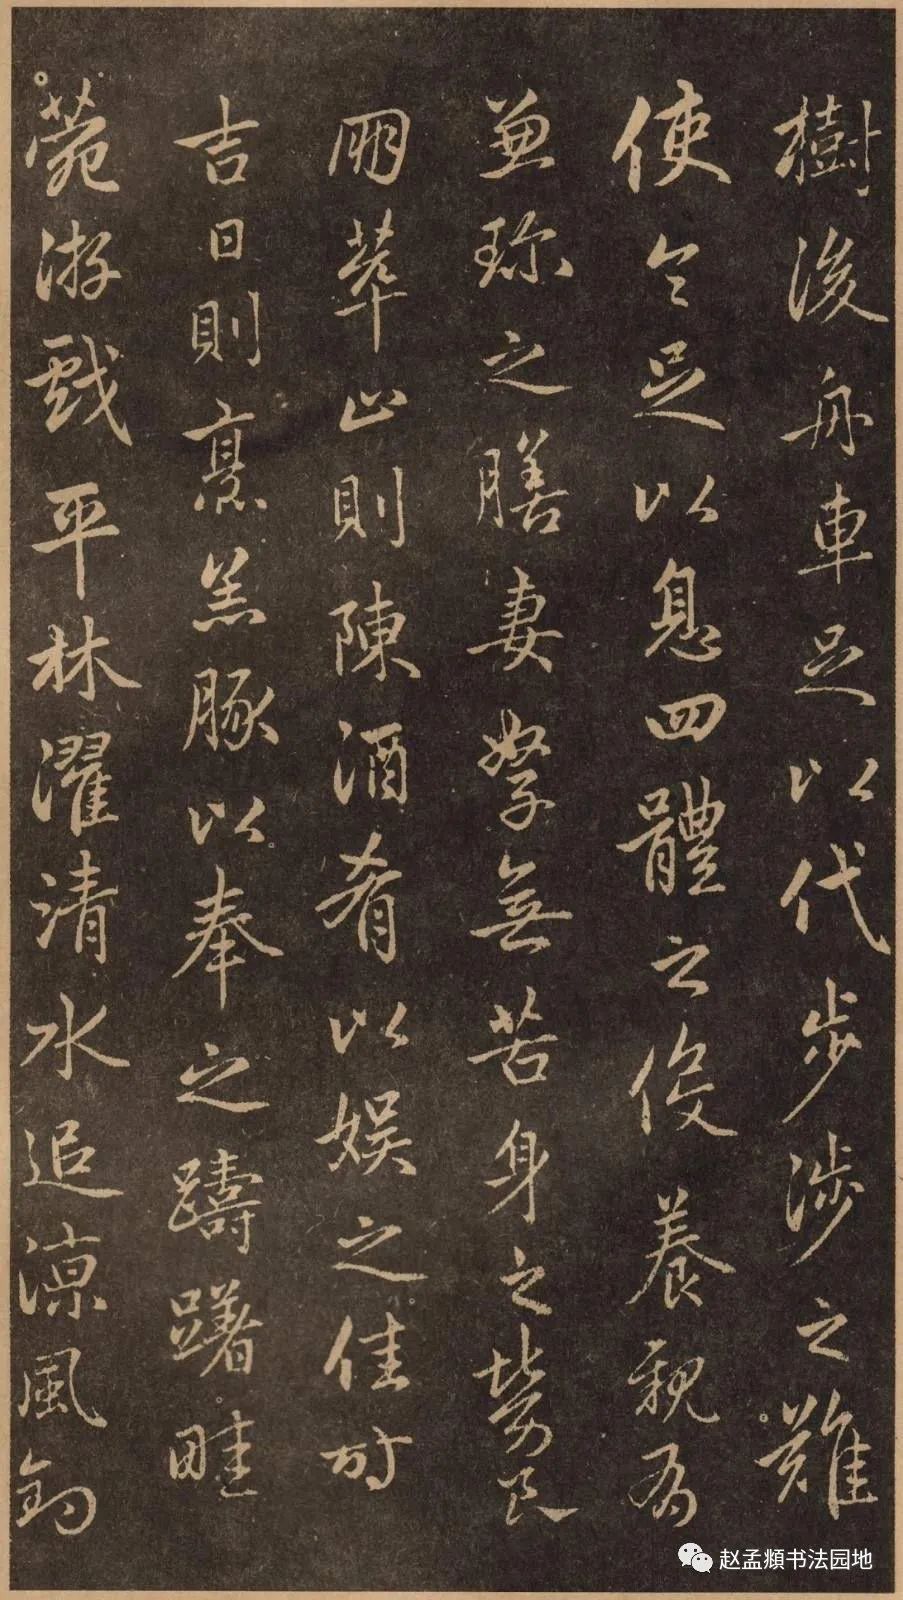 樹後舟車足以代步涉之難
使令足以息四體之役養親有
兼珍之膳妻孥無苦身之勞良
朋萃止則陳酒肴以娛之佳時
吉日則烹羔豚以奉之躊躇畦
菀游戲平林濯清水追涼風釣
赵孟頫书法园地